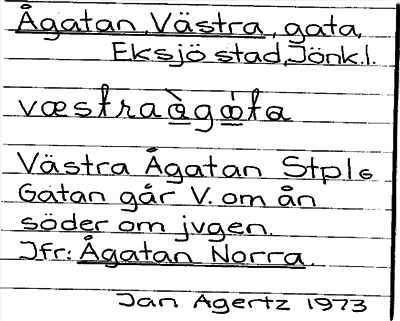 Ågatan, Västra, gata,
Eksjö stad, Jönk.l.
væstraàgǻta
Västra Ågatan Stpl6
Gatan går V. om ån
söder om jvgen.
Jfr: Ågatan Norra.
Jan Agertz 1973